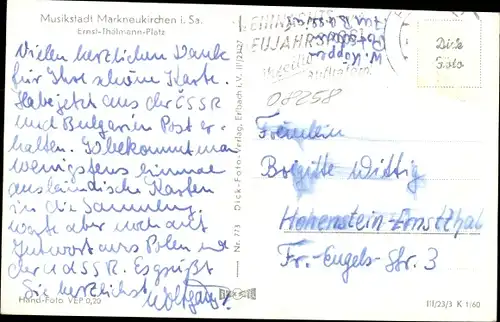 Musikstadt Markneukirchen i. Sa.
Ernst-Thälmann-Platz
Vielen herzlichen Dank
für Ihre schöne Karte.
Habe jetzt aus der ČSSR
und Bulgarien Post er-
halten. So bekommt man
wenigstens einmal
ausländische Karten
in die Sammlung,
warte aber noch auf
Antwort aus Polen und
der UdSSR. Es grüßt
Sie herzlichst Wolfgang
Hand-Foto VEP 0,20
Nr. 773 Dick-Foto-Verlag, Erlbach i. V.
EUJAHRS
08258
Dick
Foto
Fräulein
Brigitte Wittig
Hohenstein-Ernstthal
Fr.-Engels-Str. 3
III/23/3 K 1/60